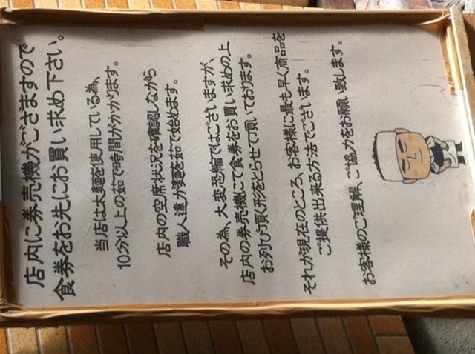 店内に券売機がございますので
食券をお先にお買い求め下さい。
当店は太麺を使用している為、
10分以上の茹で時間がかかります。
店内の空席状況を確認しながら
職人達が麺を茹で始めます。
その為、大変恐縮ではございますが、
店内の券売機にて食券をお買い求めの上
お列び頂く形をとらせて頂いております。
それが現在のところ、お客様に最も早く商品を
ご提供出来る方法でございます。
お客様のご理解、ご協力をお願い致します。